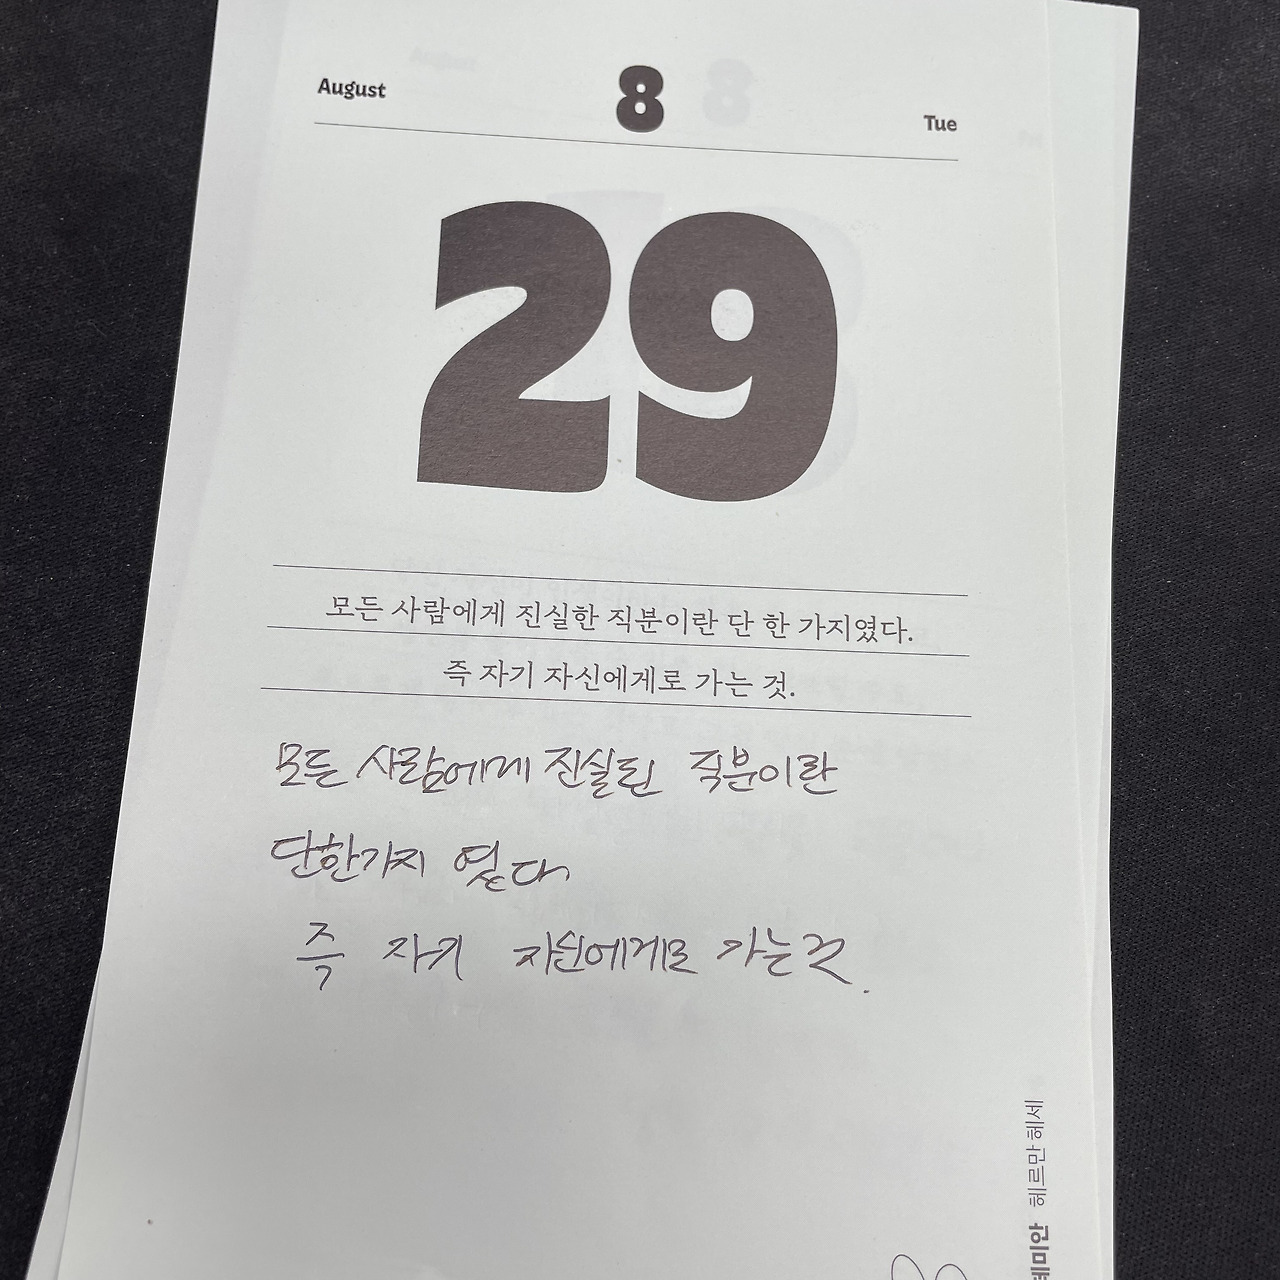 August 8 Tue
29
모든 사람에게 진실한 직분이란 단 한 가지였다.
즉 자기 자신에게로 가는 것.
모든 사람에게 진실된 직분이란
단한가지 였다
즉 자기 자신에게로 가는것.
데미안 헤르만 헤세